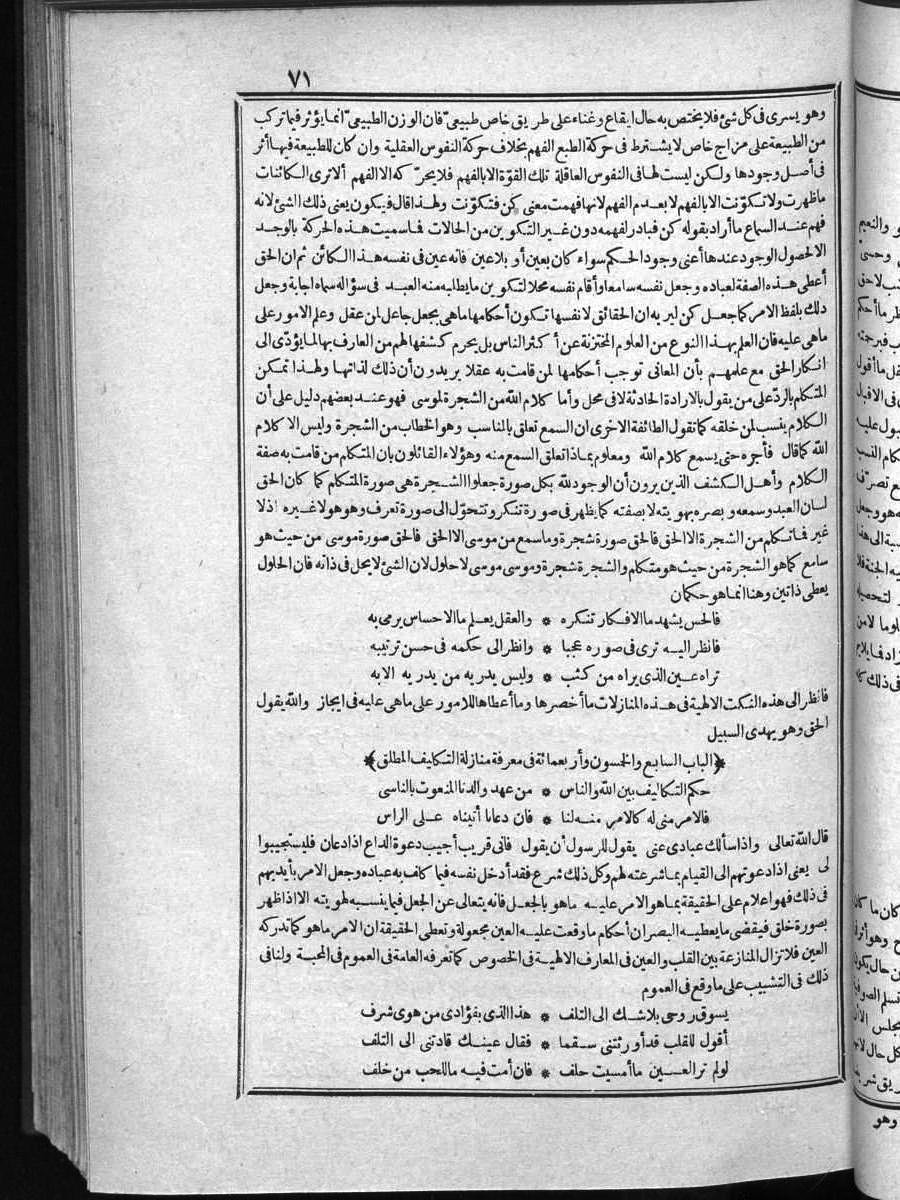 ٧١
وهو يسرى فى كل شئ فلا يختص به حال ايقاع وغناء على طريق خاص طبيعى فان الوزن الطبيعى انما يؤثر فيما تركب
من الطبيعة على مزاج خاص لا يشترط فى حركة الطبع الفهم بخلاف حركة النفوس العقلية وان كان للطبيعة فيها أثر
فى أصل وجودها ولكن ليست لها فى النفوس العاقلة تلك القوّة الا بالفهم فلا يحرّكه الا الفهم ألا ترى الكائنات
ما ظهرت ولا تكوّنت الا بالفهم لا بعدم الفهم لانها فهمت معنى كن فتكوّنت ولهذا قال فيكون يعنى ذلك الشئ لانه
فهم عند السماع ما أراد بقوله كن فبادر لفهمه دون غير التكوين من الحالات فاسميت هذه الحركة بالوجد
الا لحصول الوجود عندها أعنى وجود الحكم سواء كان بعين أو بلا عين فانه عين فى نفسه هذا الكائن ثم ان الحق
أعطى هذه الصفة لعباده وجعل نفسه سامعا وأقام نفسه محلا لتكوين ما يطلبه منه العبد فى سؤاله سماه اجابة وجعل
ذلك بلفظ الامر كما جعل كن ليريه ان الحقائق لا نفسها تكون أحكامها ما هى بجعل جاعل لمن عقل وعلم الامور على
ماهى عليه فان العلم بهذا النوع من العلوم المختزنة عن أكثر الناس بل يحرم كشفها لهم من العارف بها لما يؤدّى الى
انكار الحق مع علمهم بأن المعانى توجب أحكامها لمن قامت به عقلا يريدون أن ذلك لذاتها ولهذا تمكن
المتكلم بالردّ على من يقول بالارادة الحادثة لا فى محل وأما كلام اللّه من الشجرة لموسى فهو عند بعضهم دليل على أن
الكلام ينسب لمن خلقه كما تقول الطائفة الاخرى ان السمع تعلق بالمناسب وهو الخطاب من الشجرة وليس الا كلام
اللّه كما قال فأجره حتى يسمع كلام اللّه ومعلوم بماذا تعلق السمع منه وهؤلاء القائلون بان المتكلم من قامت به صفة
الكلام وأهل الكشف الذين يرون أن الوجود للّه بكل صورة جعلوا الشجرة هى صورة المتكلم كما كان الحق
لسان العبد وسمعه وبصره بهويته لا بصفته كما يظهر فى صورة تنكر وتتحوّل الى صورة تعرف وهو هو لا غيره اذ لا
غير فما تكلم من الشجرة الا الحق فالحق صورة شجرة وما سمع من موسى الا الحق فالحق صورة موسى من حيث هو
سامع كما هو الشجرة من حيث هو متكلم والشجرة شجرة وموسى موسى لا حلول لان الشئ لا يحل فى ذاته فان الحلول
يعطى ذاتين وهنا انما هو حكمان
فالحس يشهد ما الافكار تنكره * والعقل يعلم ما الاحساس يرمى به
فانظر اليه ترى فى صوره عجبا * وانظر الى حكمه فى حسن ترتيبه
تراه عين الذى يراه من كثب * وليس يدر يه من يدر يه الا به
فانظر الى هذه النكت الالهية فى هذه المنازلات ما أخصرها وما أعطاها للامور على ماهى عليه فى ايجاز واللّه يقول
الحق وهو يهدى السبيل
﴿الباب السابع والخمسون وأربعمائة فى معرفة منازلة التكليف المطلق﴾
حكم التكاليف بين اللّه والناس * من عهد والدنا المنعوت بالناسى
فالامر منى له كالامر منه لنا * فان دعانا أتيناه على الراس
قال اللّه تعالى واذا سألك عبادى عنى يقول للرسول أن يقول فانى قريب أجيب دعوة الداع اذا دعان فليستجيبوا
لى يعنى اذا دعوتهم الى القيام بما شرعته لهم وكل ذلك شرع فقد أدخل نفسه فيما كلف به عباده وجعل الامر بأيديهم
فى ذلك فهو اعلام على الحقيقة بما هو الامر عليه ما هو بالجعل فانه يتعالى عن الجعل فيما ينسبه لهويته الا اذا ظهر
بصورة خلق فيقضى ما يعطيه البصر ان أحكام ما وقعت عليه العين مجعولة وتعطى الحقيقة ان الامر ما هو كما تدركه
العين فلا تزال المنازعة بين القلب والعين فى المعارف الالهية فى الخصوص كما تعرفه العامة فى العموم فى المحبة ولنا فى
ذلك فى التشبيب على ما وقع فى العموم
يسوق روحى بلا شك الى التلف * هذا الذى بفؤادى من هوى شرف
أقول للقلب قد أورثتنى سقما * فقال عينك قادتنى الى التلف
لو لم تر العين ما أمسيت حلف * فان أمت فيه ما للحب من خلف